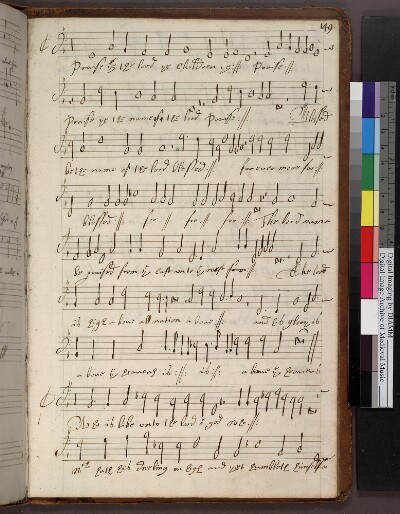 149
Praise ye the lord ye Children ://: Praise ://:
Praise ye the name of the lord Praise ://: Blessed
be the name of the lord blessed ://: for ever more for ://:
blessed ://: for ://: for ://: for ://: The lord name
be praised from the unto the ://: The lord
is high a bove all nation a bove ://: and his glory is
a bove the heavens is ://: is ://: a bove the heavens
Who is like unto the lord god ://:
hath his dwelling on high and yet humbleth himselfe
Digital Imaging by DIAMM
Digital Image Archive of Medieval Music